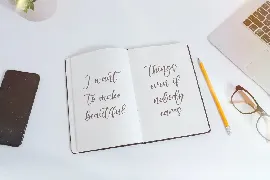 I want
To make
beautiful
things
even if
nobody
cares